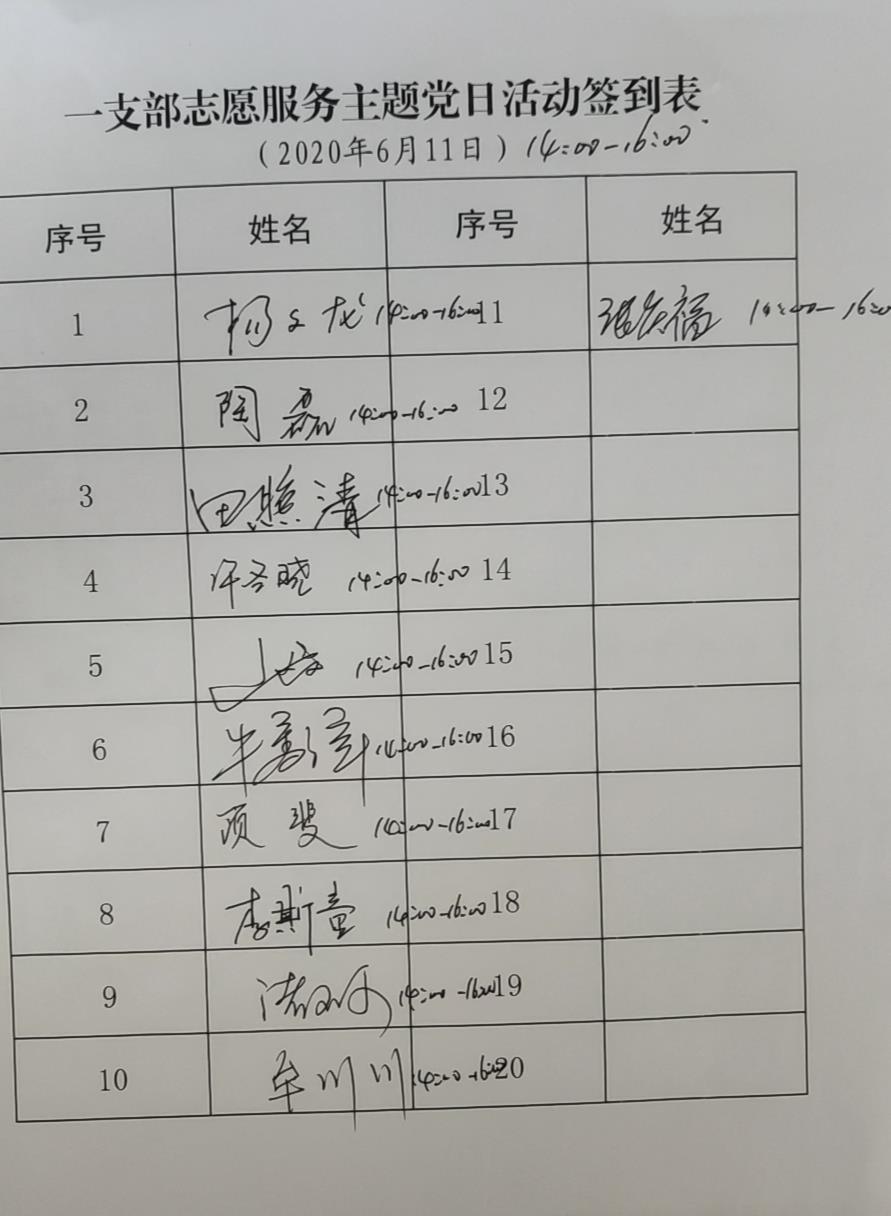 一支部志愿服务主题党日活动签到表
（2020年6月11日）14:00-16:00
序号 姓名 序号 姓名
1 杨文龙 14:00-16:00 11 张庆福 14:00-16:00
2 陶磊 14:00-16:00 12
3 田照清 14:00-16:00 13
4 许冬晓 14:00-16:00 14
5 14:00-16:00 15
6 牛 14:00-16:00 16
7 项斐 14:00-16:00 17
8 李斯童 14:00-16:00 18
9 14:00-16:00 19
10 川川 14:00-16:00 20